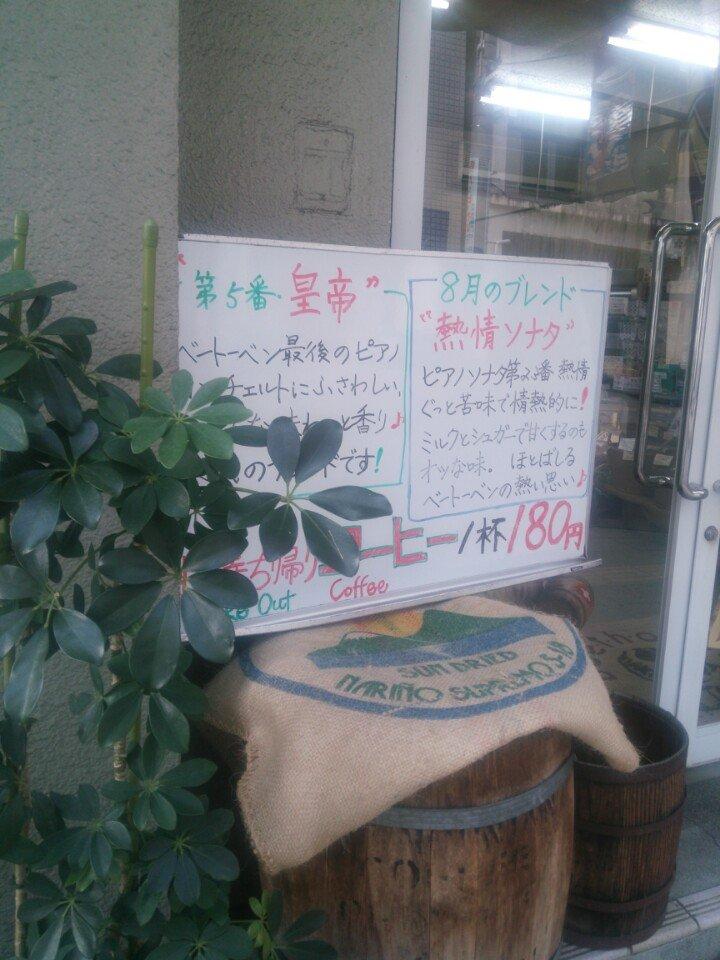 第5番 皇帝"
ベートーベン最後のピアノ
チェルトにふさわしい、
と香り♪
ドです!
8月のブレンド
"熱情ソナタ"
ピアノソナタ第23番 熱情
ぐっと苦味で情熱的に!
ミルクとシュガーで甘くするのも
オツな味。 ほとばしる
ベートーベンの熱い思い♪
ち帰りコーヒー1杯180円
Out Coffee
SUN DRIED
NARINO SUPREMO